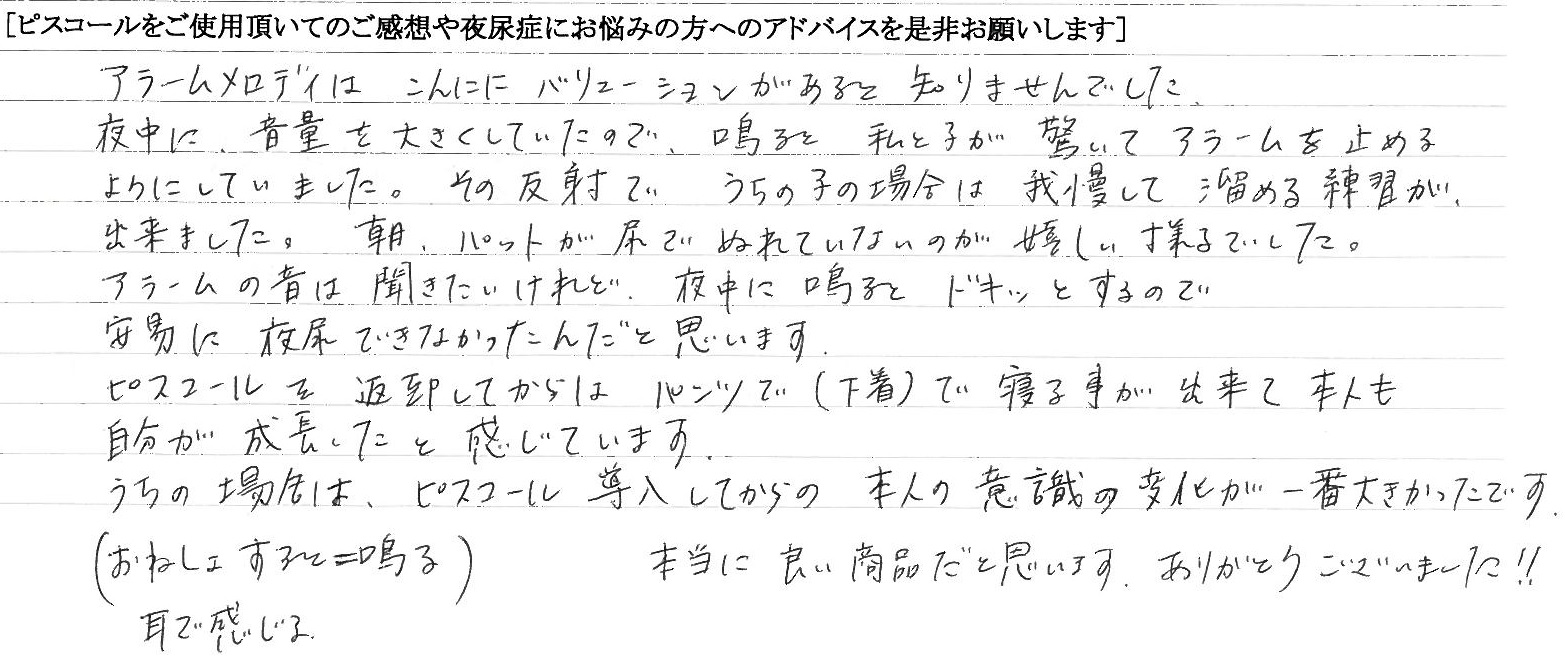 [ピスコールをご使用頂いてのご感想や夜尿症にお悩みの方へのアドバイスを是非お願いします]
アラームメロディは こんにに バリューションがあると 知りませんでした。
夜中に、音量を大きくしていたので、鳴ると 私と子が 驚いて アラームを 止める
ようにしていました。その反射で うちの子の場合は 我慢して 溜める練習が、
出来ました。 朝、パットが 尿で ぬれていないのが 嬉しい 様子でした。
アラームの音は 聞きたいけれど、夜中に 鳴ると ドキッとするので
安易に 夜尿できなかったんだと思います。
ピスコールを 返却してからは パンツで(下着)で 寝る事が 出来て 本人も
自分が 成長したと 感じています。
うちの 場合は、ピスコール 導入してからの 本人の 意識の 変化が 一番大きかったです。
(おねしょ すると=鳴る) 本当に 良い 商品だと思います。ありがとうございました!!
耳で感じる。